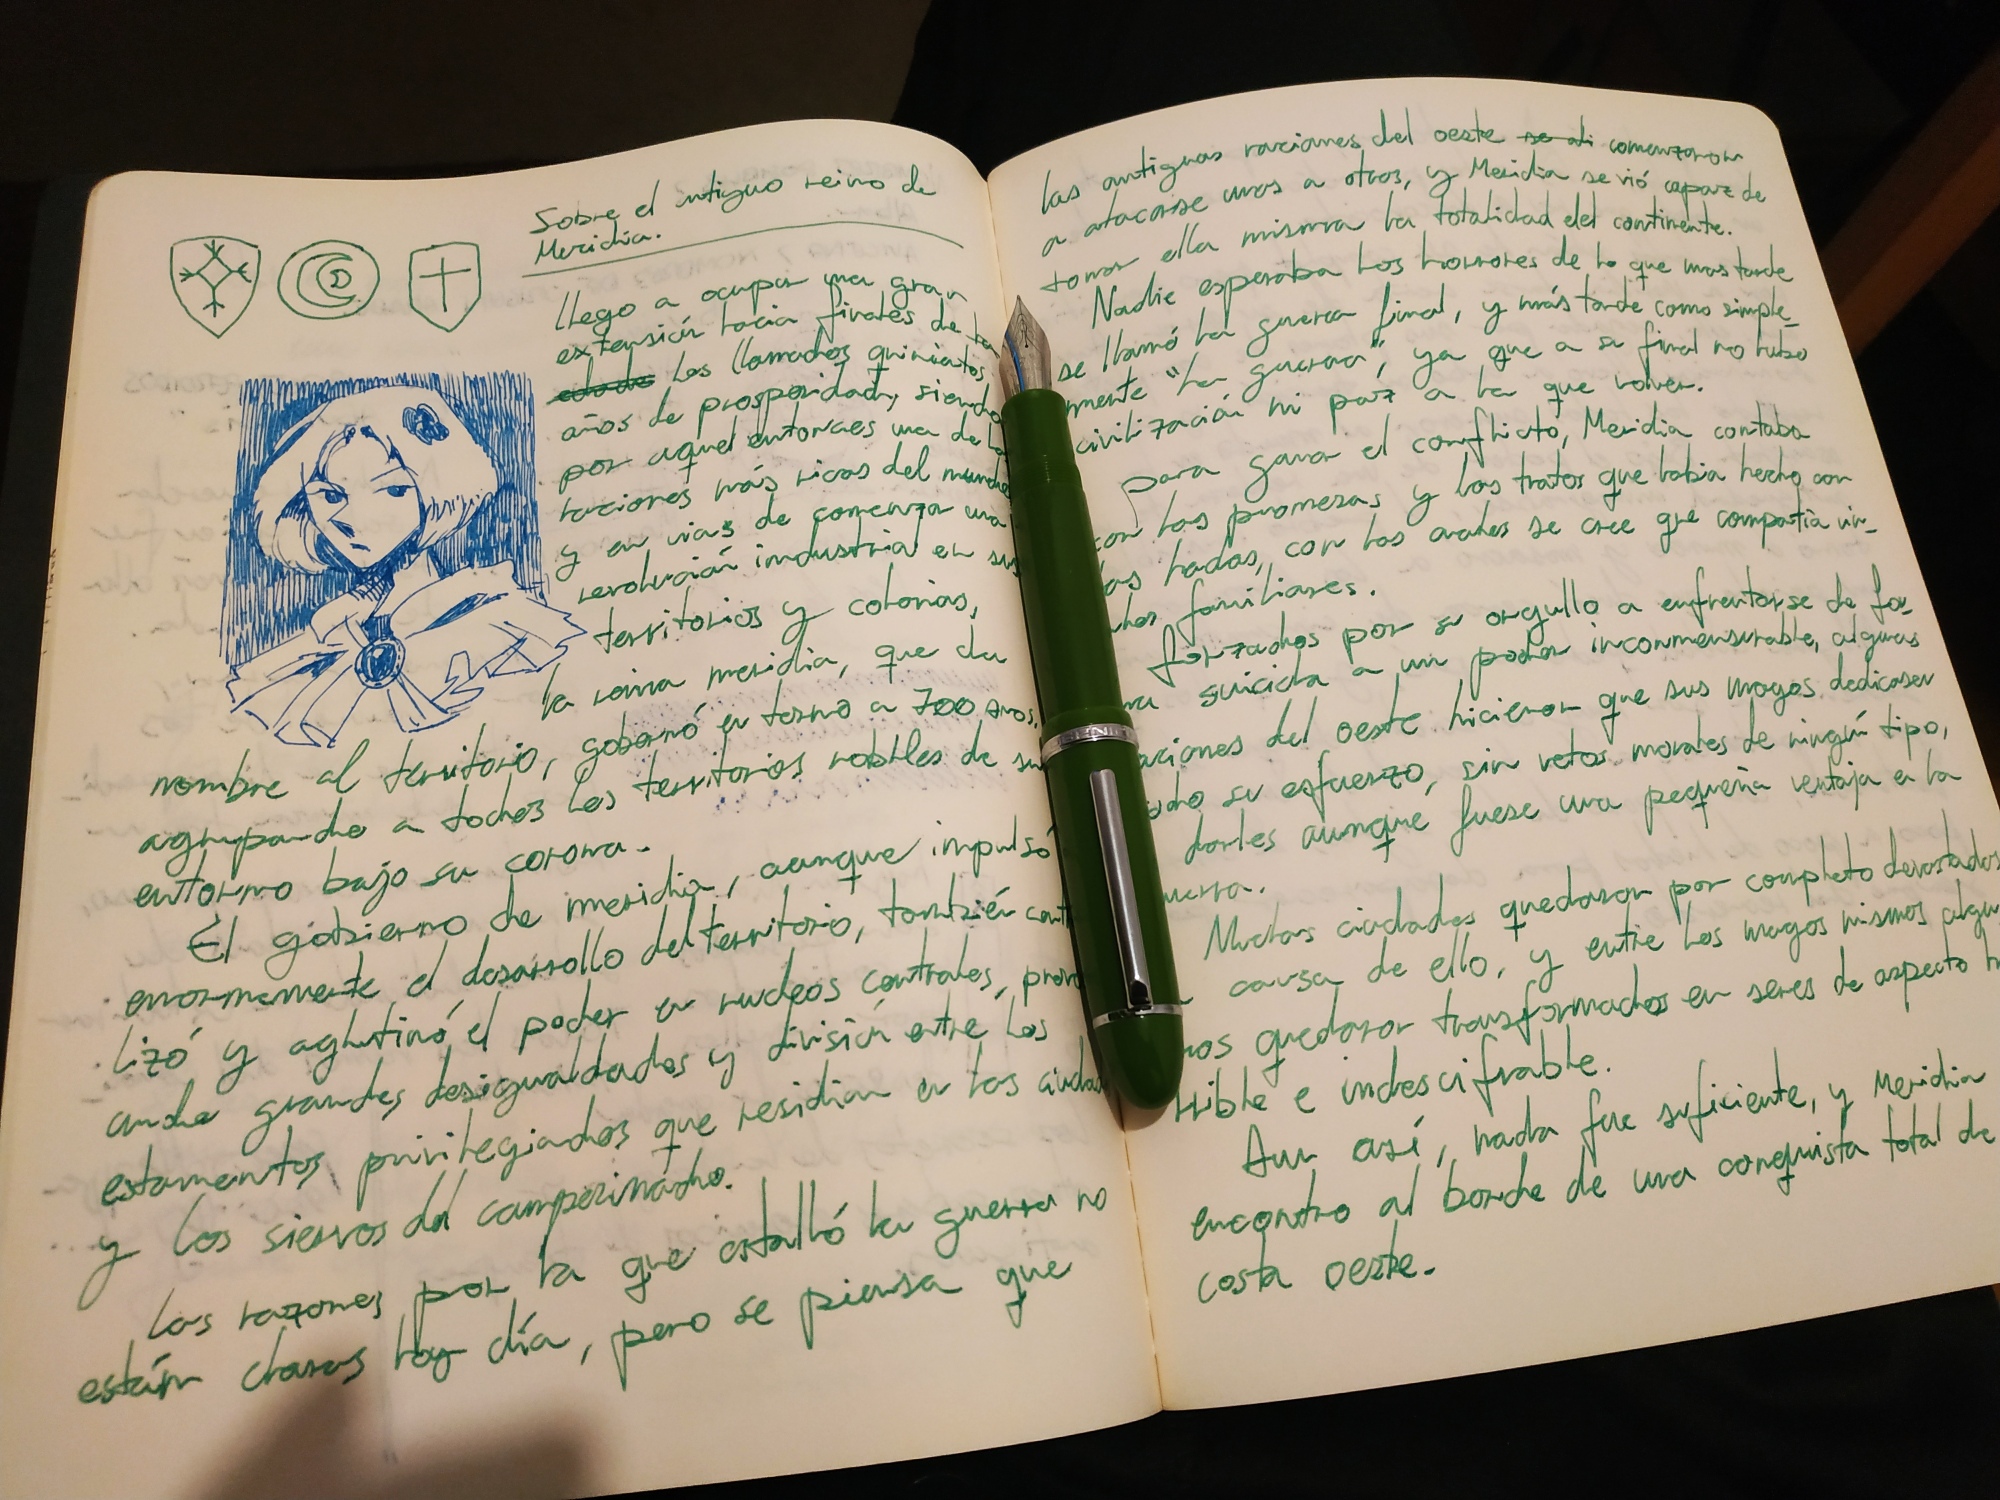 Sobre el antiguo reino de
Meridia.
llego a ocupar una gran
extensión hacia finales de la
los llamados quinientos
años de prosperidad, siendo
por aquel entonces una de la
naciones más ricas del mundo
y en vias de comenzar una
revolución industrial en sus
territorios y colonias,
la reina meridia, que da
nombre al territorio, gobernó en torno a 700 anos,
agrupando a todos los territorios nobles de su
entorno bajo su corona.
El gobierno de meridia, aunque impulsó
enormemente el desarrollo del territorio, también
lizó y aglutinó el poder en nucleos centrales,
ando grandes desigualdades y división entre los
estamentos privilegiados que residian en las
y los siervos del campesinado.
Las razones por la que estalló la guerra no
están claras hoy día, pero se piensa que
las antiguas naciones del oeste comenzaron
a atacarse unos a otros, y Meridia se vió capaz de
tomar ella misma la totalidad del continente.
Nadie esperaba los horrores de lo que mas tarde
se llamó la guerra final, y más tarde como simple-
mente "la guerra", ya que a su final no hubo
civilización ni paz a la que volver.
para ganar el conflicto, Meridia contaba
con las promesas y los tratos que habia hecho con
las hadas, con las cuales se cree que compartía vin-
familiares.
forzados por su orgullo a enfrentarse de fo-
suicida a un poder inconmensurable, algunas
naciones del oeste hicieron que sus magos dedicasen
su esfuerzo, sin vetos morales de ningún tipo,
darles aunque fuese una pequeña ventaja en la
guerra.
Muchas ciudades quedaron por completo devastadas
causa de ello, y entre los magos mismos
nos quedaron transformados en seres de aspecto
rrible e indescifrable.
Aun así, nada fue suficiente, y Meridia
encontro al borde de una conquista total de
costa oeste.